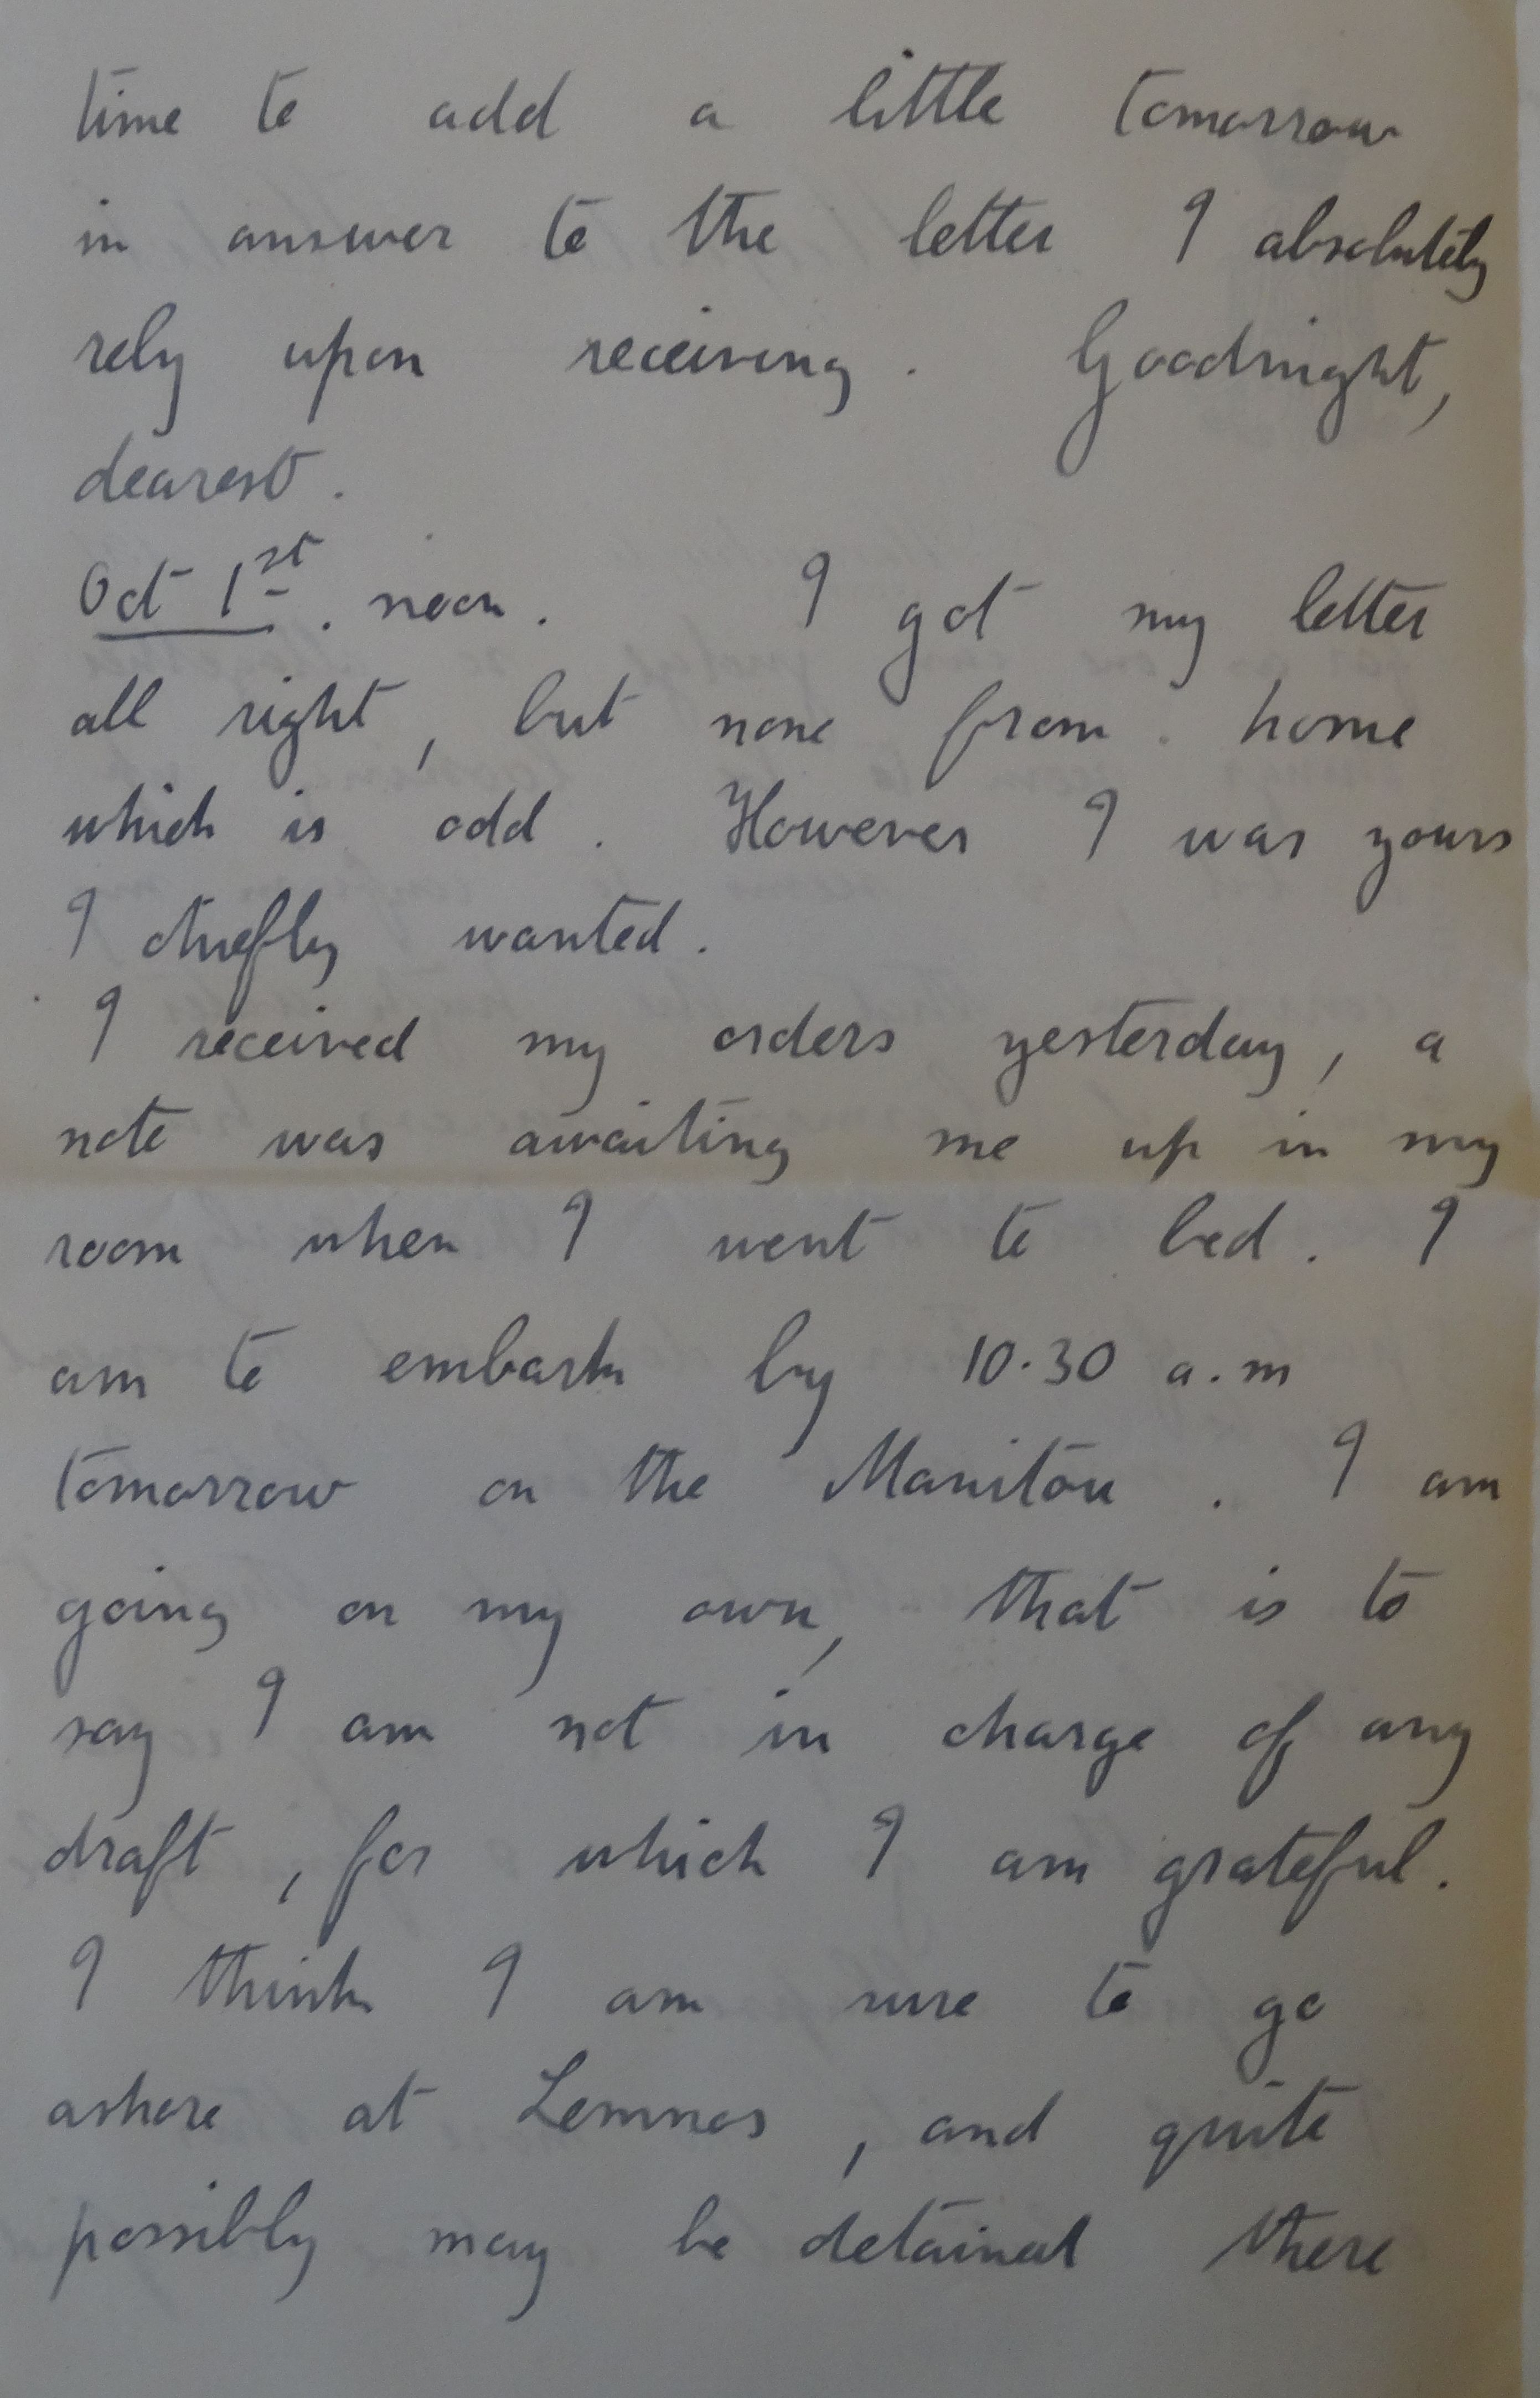 time to add a little tomorrow
in answer to the letter I absolutely
rely upon receiving. Goodnight,
dearest.
Oct 1st. noon. I got my letter
all right, but none from home
which is odd. However I was yours
I chiefly wanted.
I received my orders yesterday, a
note was awaiting me up in my
room when I went to bed. I
am to embark by 10.30 a.m
tomorrow on the Manitou. I am
going on my own, that is to
say I am not in charge of any
draft, for which I am grateful.
I think I am sure to go
ashore at Lemnos, and quite
possibly may be detained there